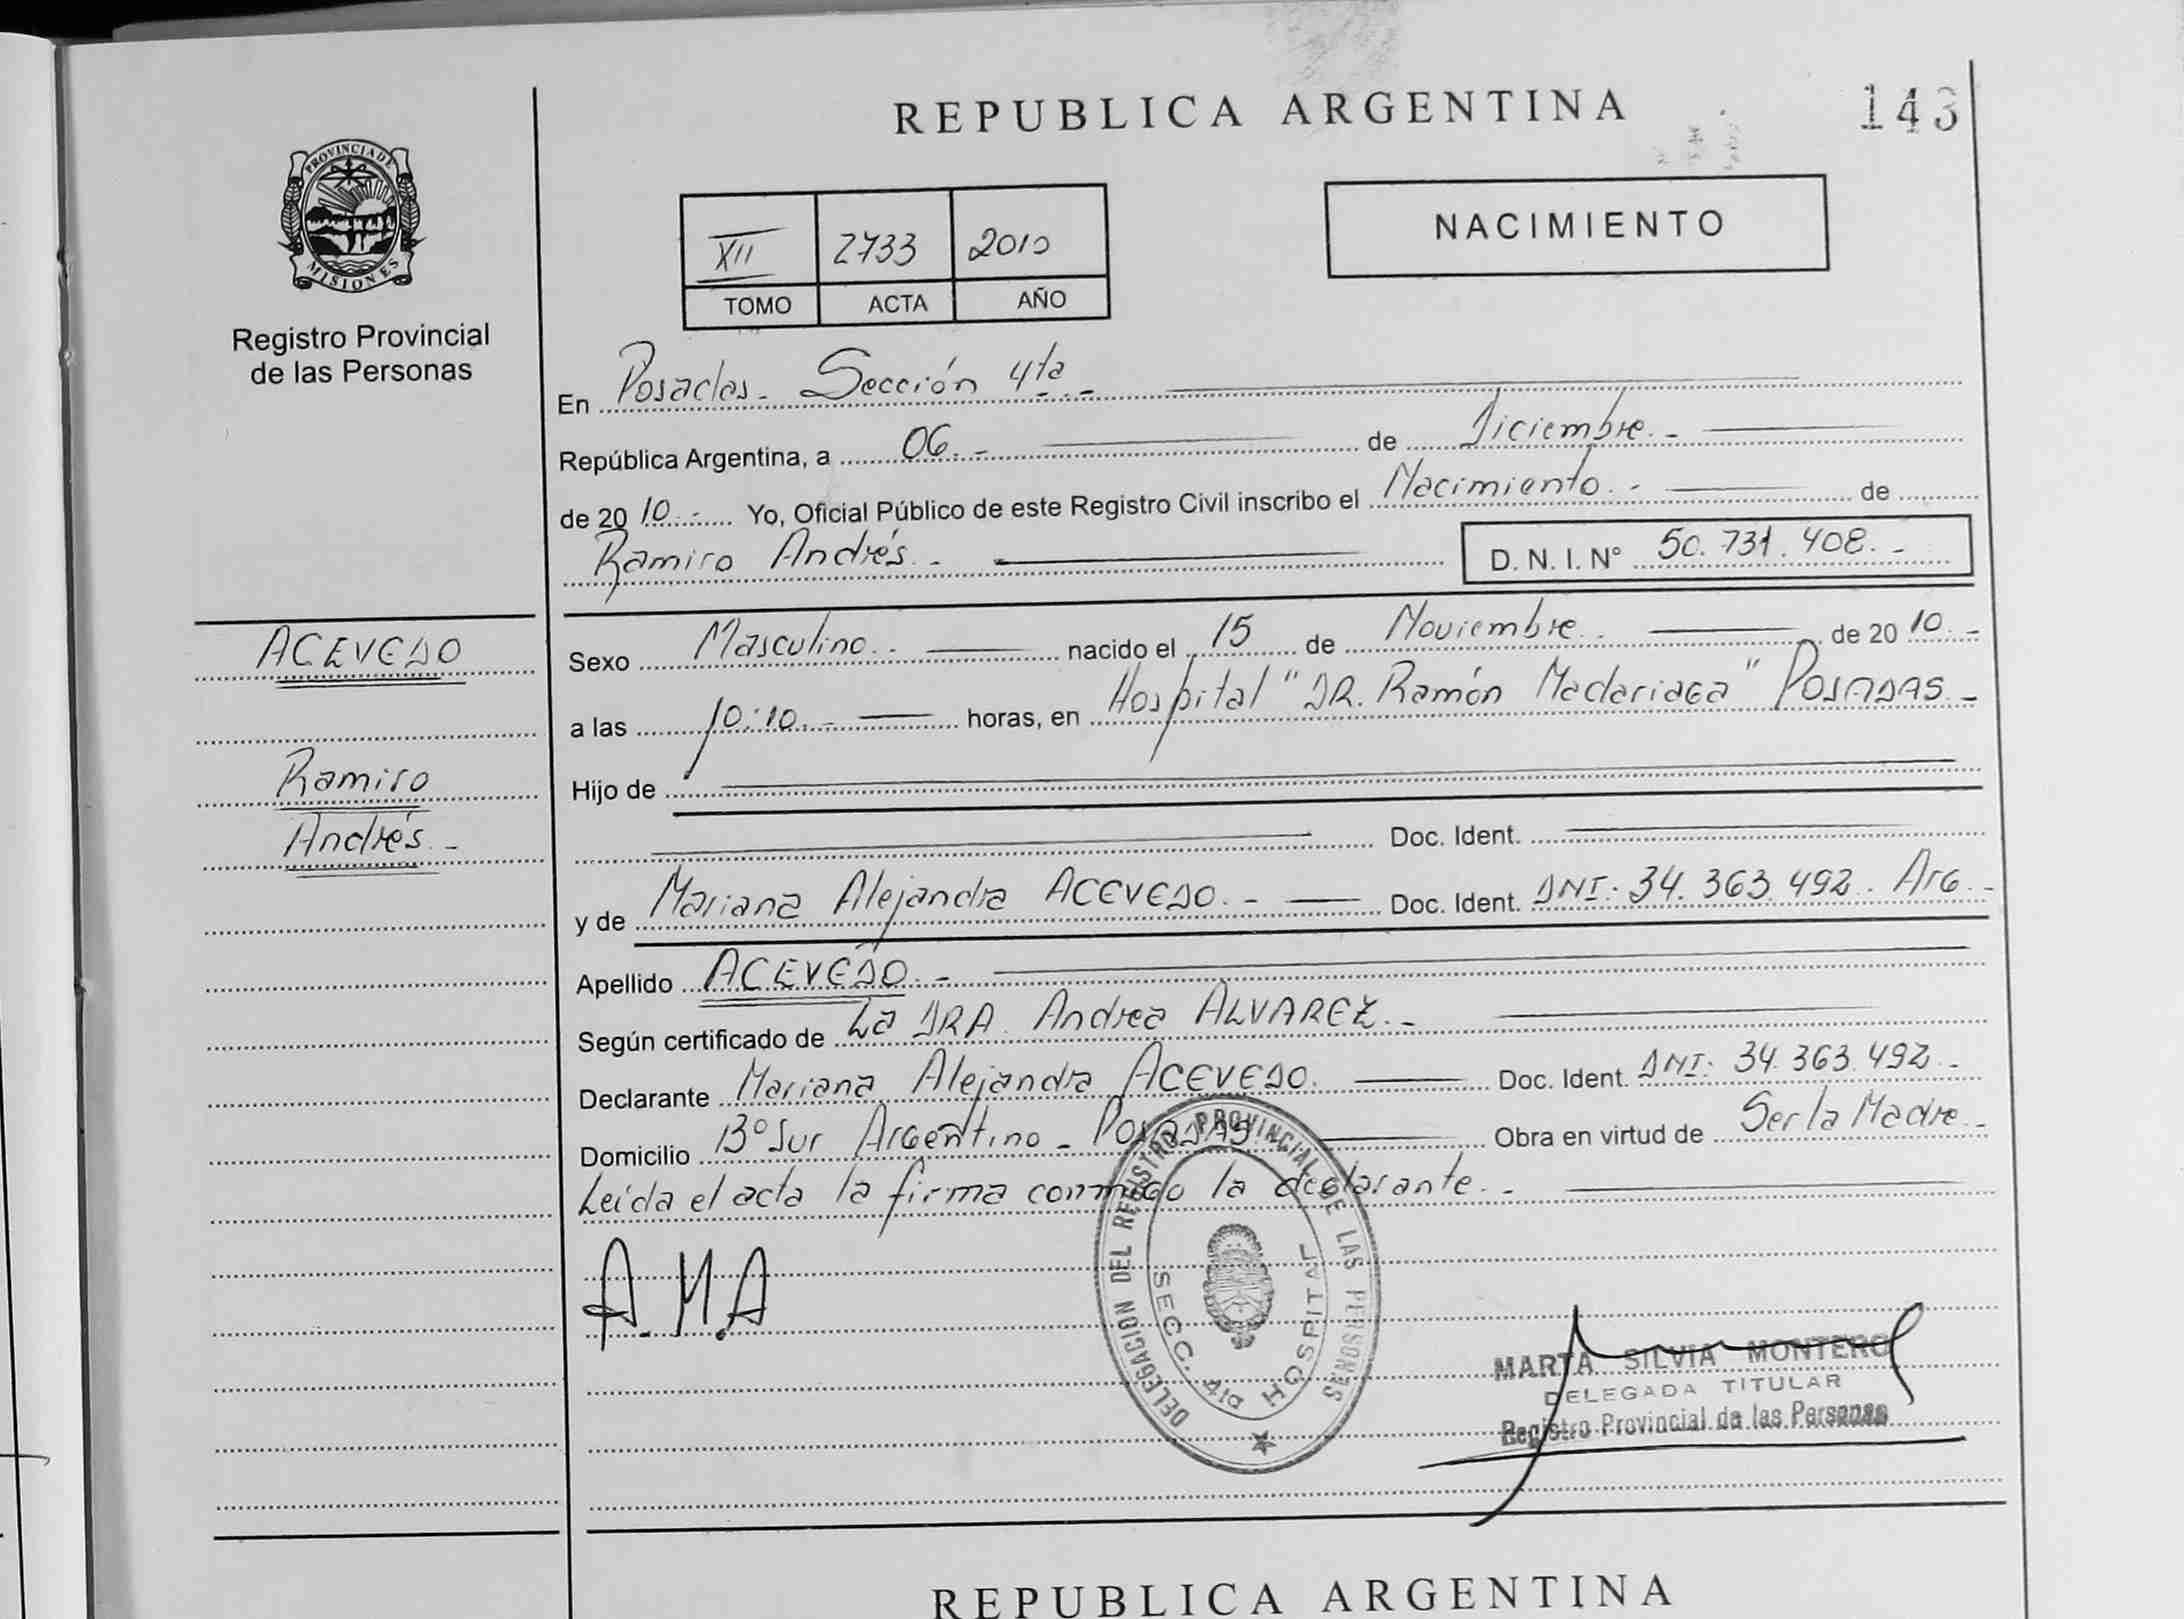 REPUBLICA ARGENTINA
143
PROVINCIA DE
MISIONES
Registro Provincial
de las Personas
XII 2733 2010
TOMO ACTA AÑO
NACIMIENTO
En Posadas - Sección 4ta -
República Argentina, a 06.- de Diciembre.-
de 2010.- Yo, Oficial Público de este Registro Civil inscribo el Nacimiento.- de
Ramiro Andrés.- D. N. I. Nº 50.731.408.-
ACEVEDO
Ramiro
Andrés.-
Sexo Masculino.- nacido el 15 de Noviembre.- de 2010.-
a las 10:10.- horas, en Hospital "DR. Ramón Madariaga" POSADAS.-
Hijo de
Doc. Ident.
y de Mariana Alejandra ACEVEDO.- Doc. Ident. DNI: 34.363.492. Arg.-
Apellido ACEVEDO.-
Según certificado de La DRA. Andrea ALVAREZ.-
Declarante Mariana Alejandra ACEVEDO. Doc. Ident. DNI: 34.363.492.-
Domicilio Bº Sur Argentino - POSADAS Obra en virtud de Ser la Madre.-
Leída el acta la firma conmigo la declarante.-
A.M.A
DELEGACION DEL REGISTRO PROVINCIAL DE LAS PERSONAS
SECC. 4ta HOSPITAL
MARTA SILVIA MONTERO
DELEGADA TITULAR
Registro Provincial de las Personas
REPUBLICA ARGENTINA